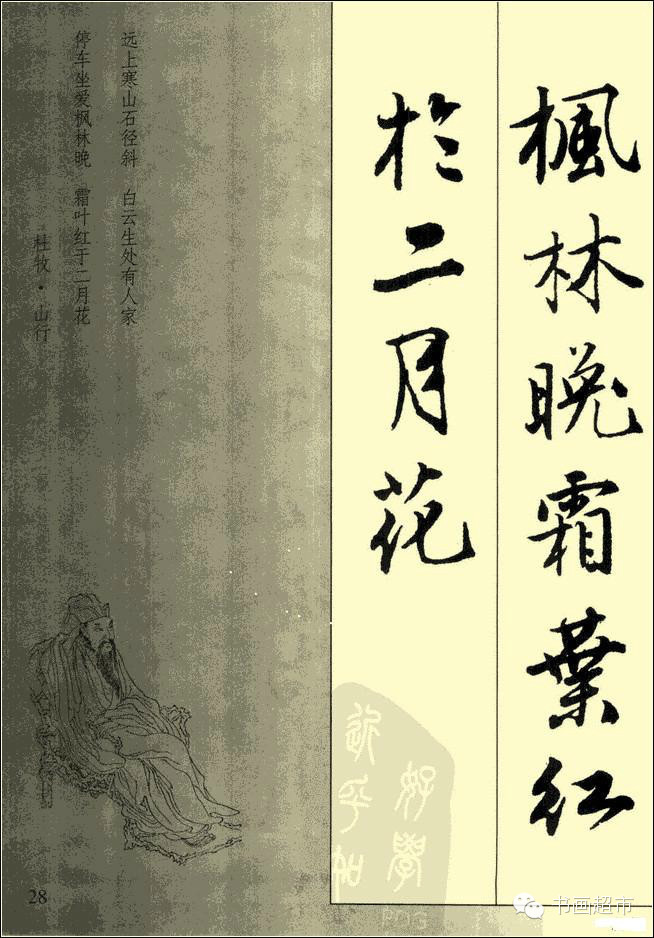 楓林晚霜葉紅
於二月花
远上寒山石径斜 白云生处有人家
停车坐爱枫林晚 霜叶红于二月花
杜牧·山行
好學
近乎知
28
PDG
书画超市